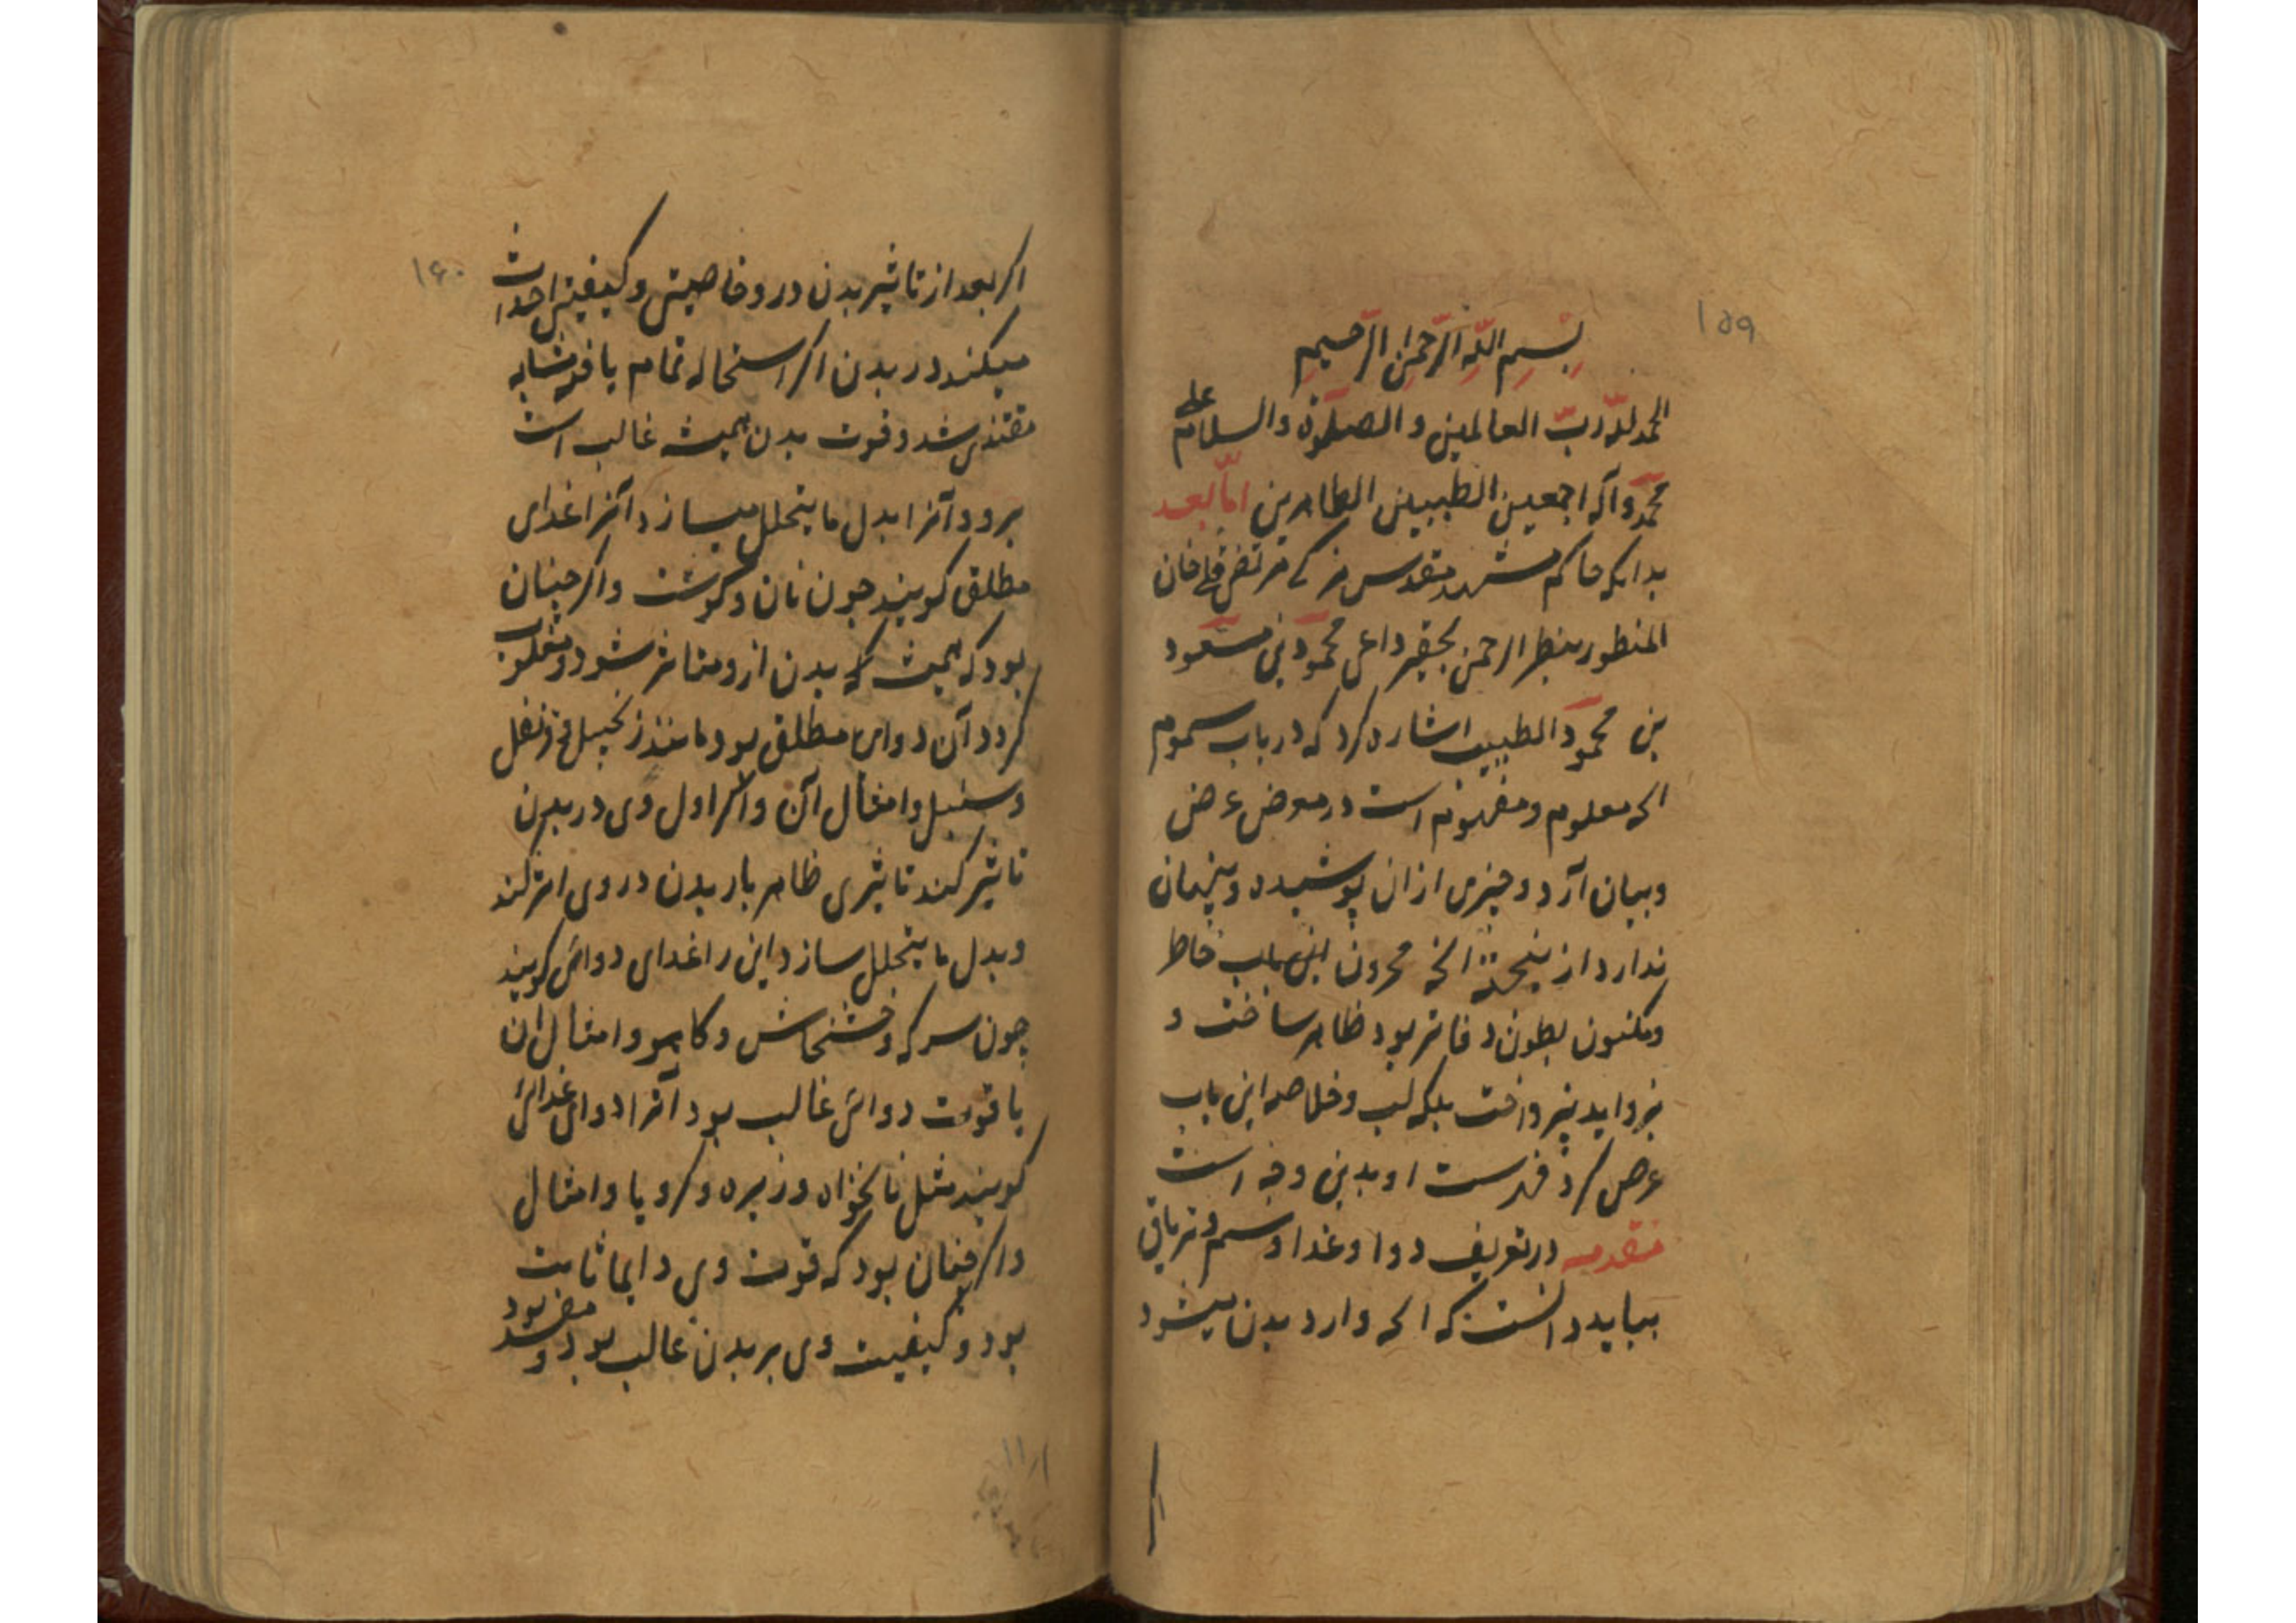 ۱۵۹
بسم الله الرحمن الرحیم
الحمد لله رب العالمین و الصلوة والسلام علی
محمد وآله اجمعین الطیبین الطاهرین اما بعد
بدانکه حاکم مشهد مقدس مرتضی قلی خان
المنظور بنظر الرحمن بحقیر داعی محمود بن مسعود
بن محمود الطبیب اشاره کرد که در باب سموم
انچه معلوم و مفهوم است در معرض عرض
وبیان آرد و چیزی از ان پوشیده و پنهان
ندارد از انچه مخزون این باب خاطر
ومکنون بطون دفاتر بود ظاهر ساخت و
بزواید نپرداخت بلکه لب و خلاصه این باب
عرض کرد فهرست او بدین وجه است
مقدمه در تعریف دوا و غذا و سم و تریاق
بباید دانست که انچه وارد بدن میشود
۱۶۰
اکر بعد از تاثیر بدن درو خاصیتی و کیفیتی احداث
میکند در بدن اکر استحاله تمام یافته مشابه
مغتذی شد و قوت بدن همیشه غالب است
برو و آنرا بدل ما یتحلل میسازد آنرا غذای
مطلق کویند چون نان و کوشت و اکر چنان
بود که همیشه که بدن ازو متاثر شود و مغلوب
کردد آن دوای مطلق بود مانند زنجبیل و قرنفل
و سنبل و امثال آن و اکر اول وی در بدن
تاثیر کند تاثیری ظاهر باز بدن در وی اثر کند
وبدل ما یتحلل سازد این را غذای دوائی کویند
چون سرکه و خشخاش و کاهو و امثال ان
با قوت دوائی غالب بود آنرا دوای غذائی
کویند مثل نانخواه و زیره و کرویا و امثال
واکر چنان بود که قوت وی دایما ثابت
بود و کیفیت وی بر بدن غالب بود و مفسد بود